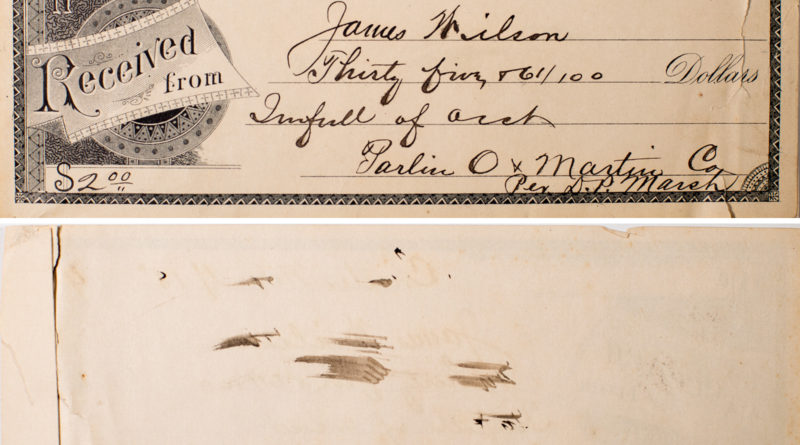 Received from
James Wilson
Thirty five & 61/100 Dollars
In full of acct
Parlin O & Martin Co
Per D.P. Marsh
$2.00